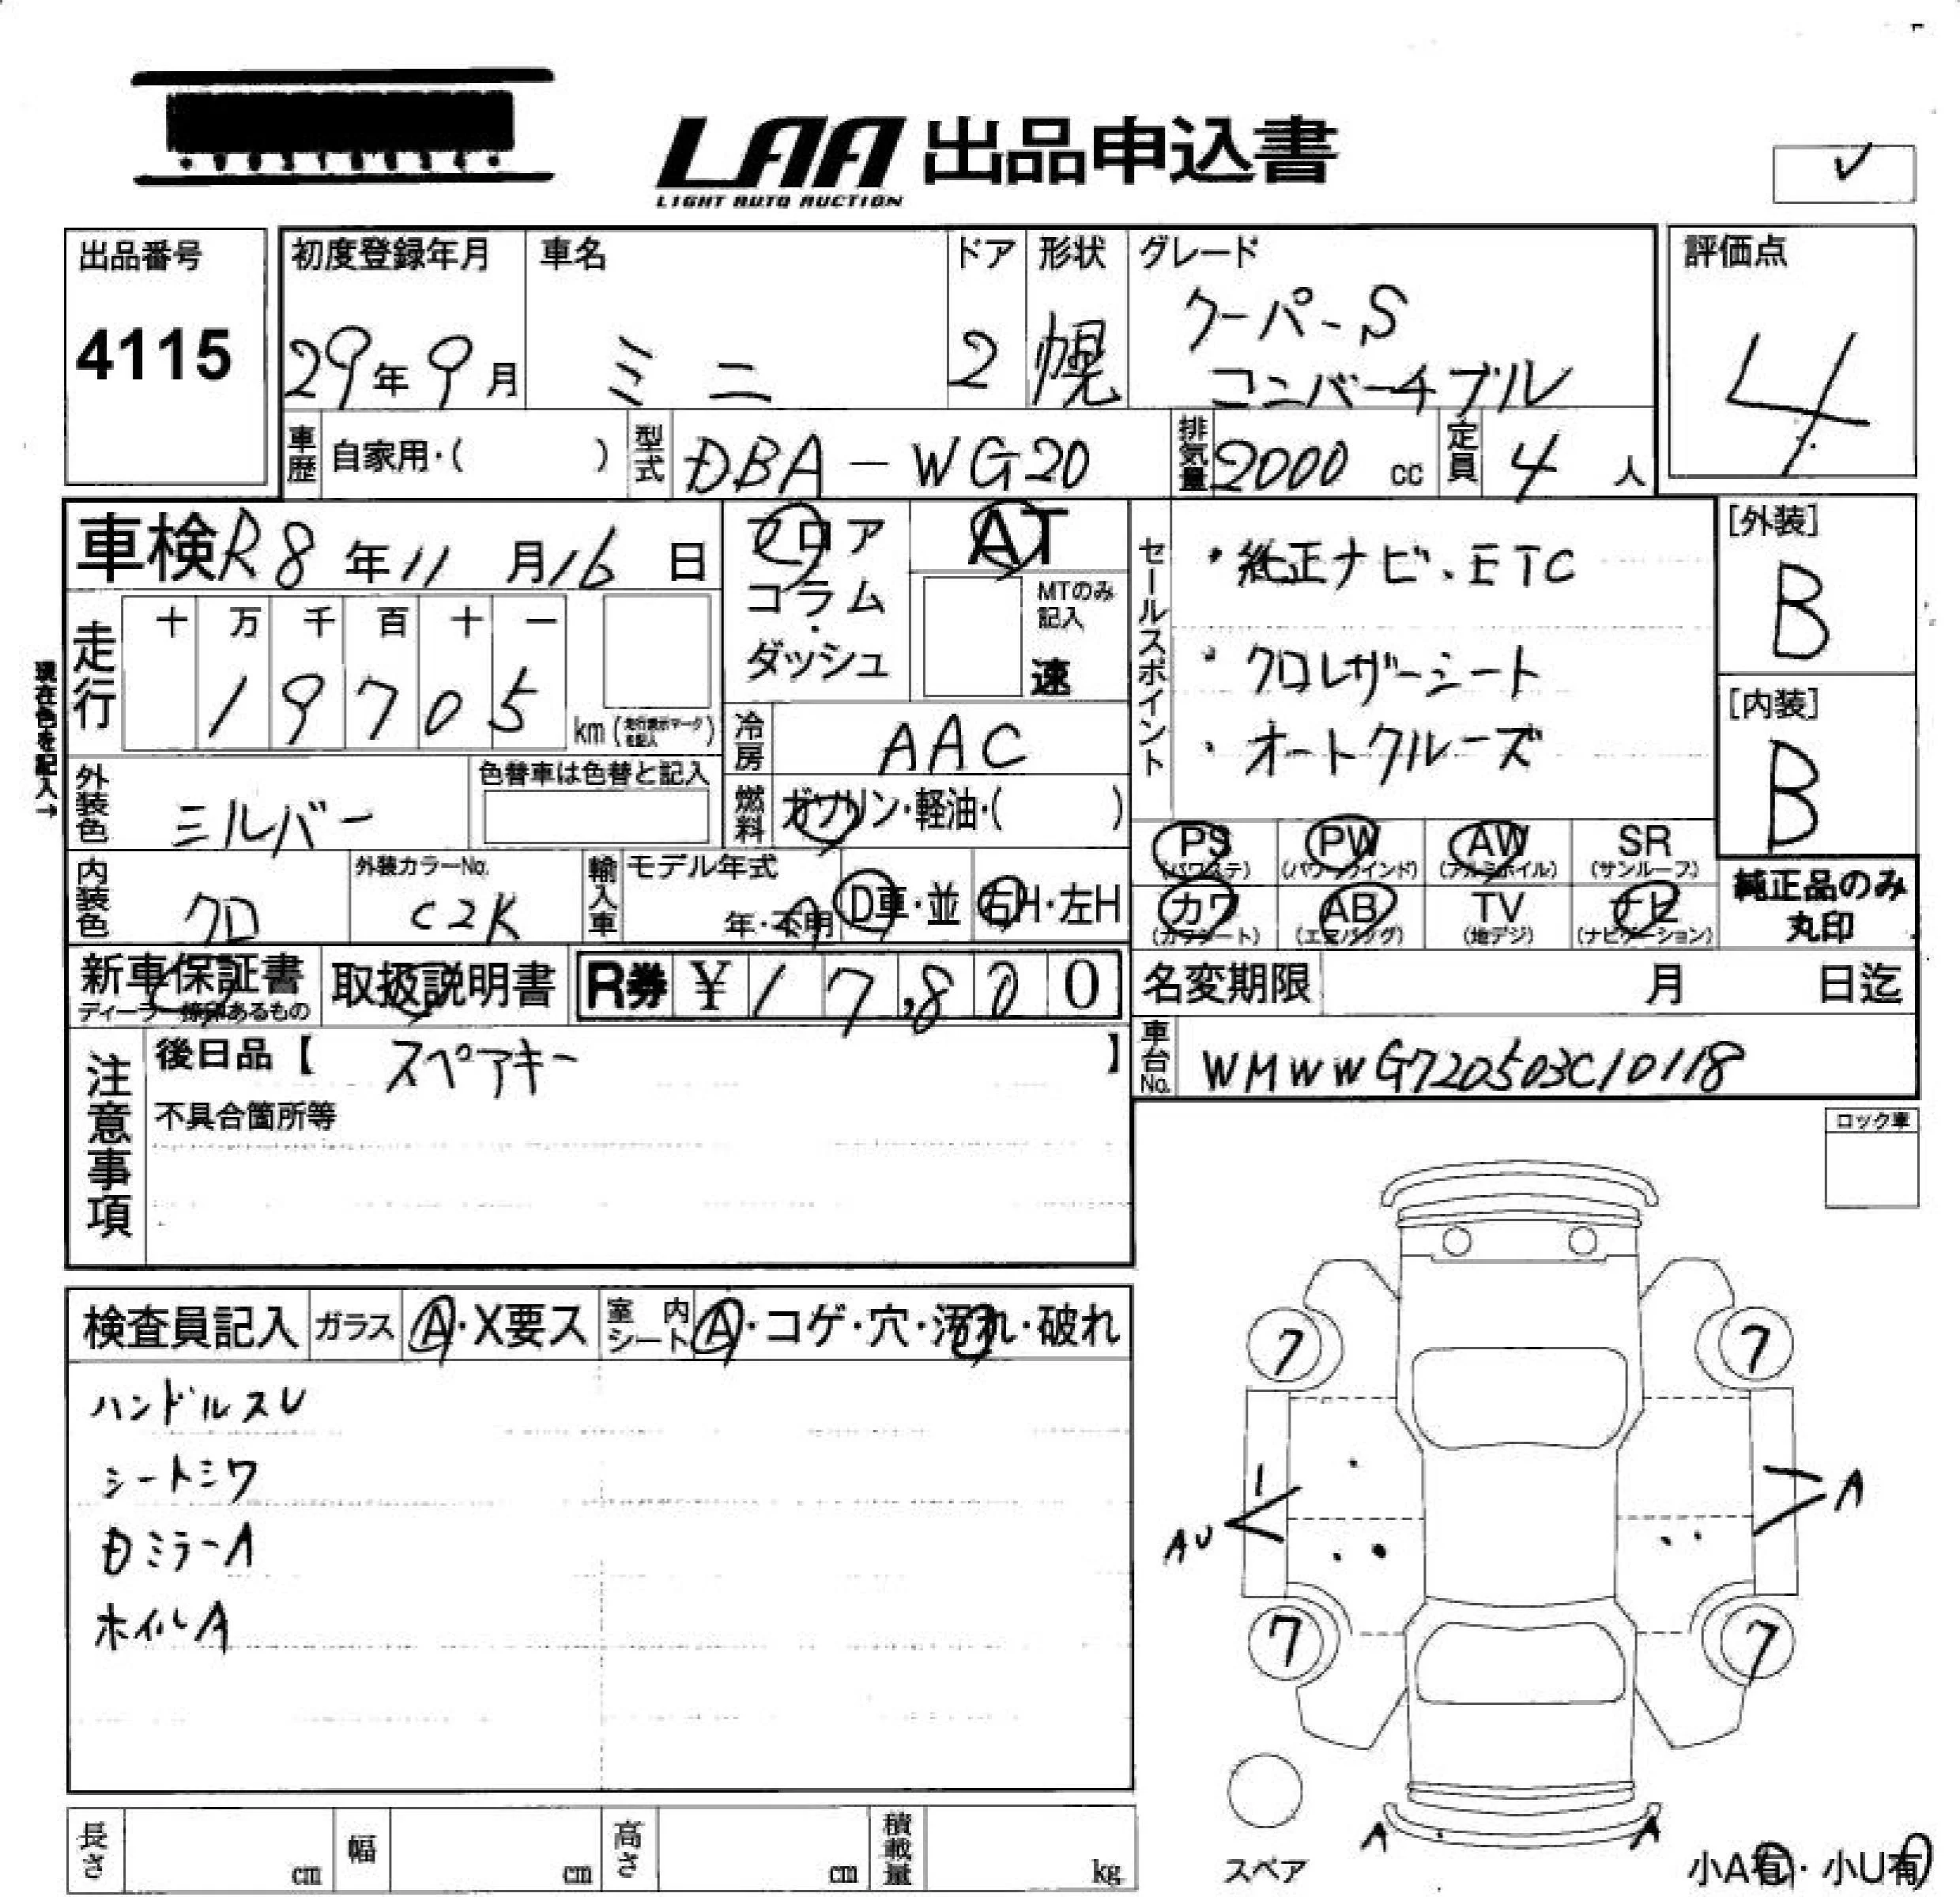 LAA 出品申込書
LIGHT AUTO AUCTION
✓
出品番号
4115
初度登録年月
29年9月
車名
ミニ
ドア
2
形状
幌
グレード
クーパーS
コンバーチブル
評価点
4
車歴
自家用・(　　　)
型式
DBA-WG20
排気量
2000 cc
定員
4 人
車検 R8年11月16日
フロア
コラム・ダッシュ
AT
MTのみ記入
速
セールスポイント
・純正ナビ、ETC
・クロレザーシート
・オートクルーズ
[外装]
B
[内装]
B
現在色を記入→
走行
十 万 千 百 十 一
19705
km (走行表示マークを記入)
冷房
AAC
外装色
ミルバー
色替車は色替と記入
燃料
ガソリン・軽油・(　　　)
PS (パワステ)
PW (パワーウインド)
AW (アルミホイル)
SR (サンルーフ)
内装色
クロ
外装カラーNo.
C2K
輸入車
モデル年式
年・不明
D車・並
右H・左H
カワ (カワシート)
AB (エアバッグ)
TV (地デジ)
ナビ (ナビゲーション)
純正品のみ丸印
新車保証書
ディーラー捺印あるもの
取扱説明書
R券 ¥ 17,800
名変期限
月　日迄
注意事項
後日品【 スペアキー 】
不具合箇所等
車台No.
WMWWG720503C10118
ロック車
検査員記入
ガラス
A・X要ス
室内シート
A・コゲ・穴・汚れ・破れ
ハンドルスU
シートミワ
ミラーA
ホイルA
7
7
AU
A
7
7
A
A
スペア
小A有・小U有
長さ
cm
幅
cm
高さ
cm
積載量
kg